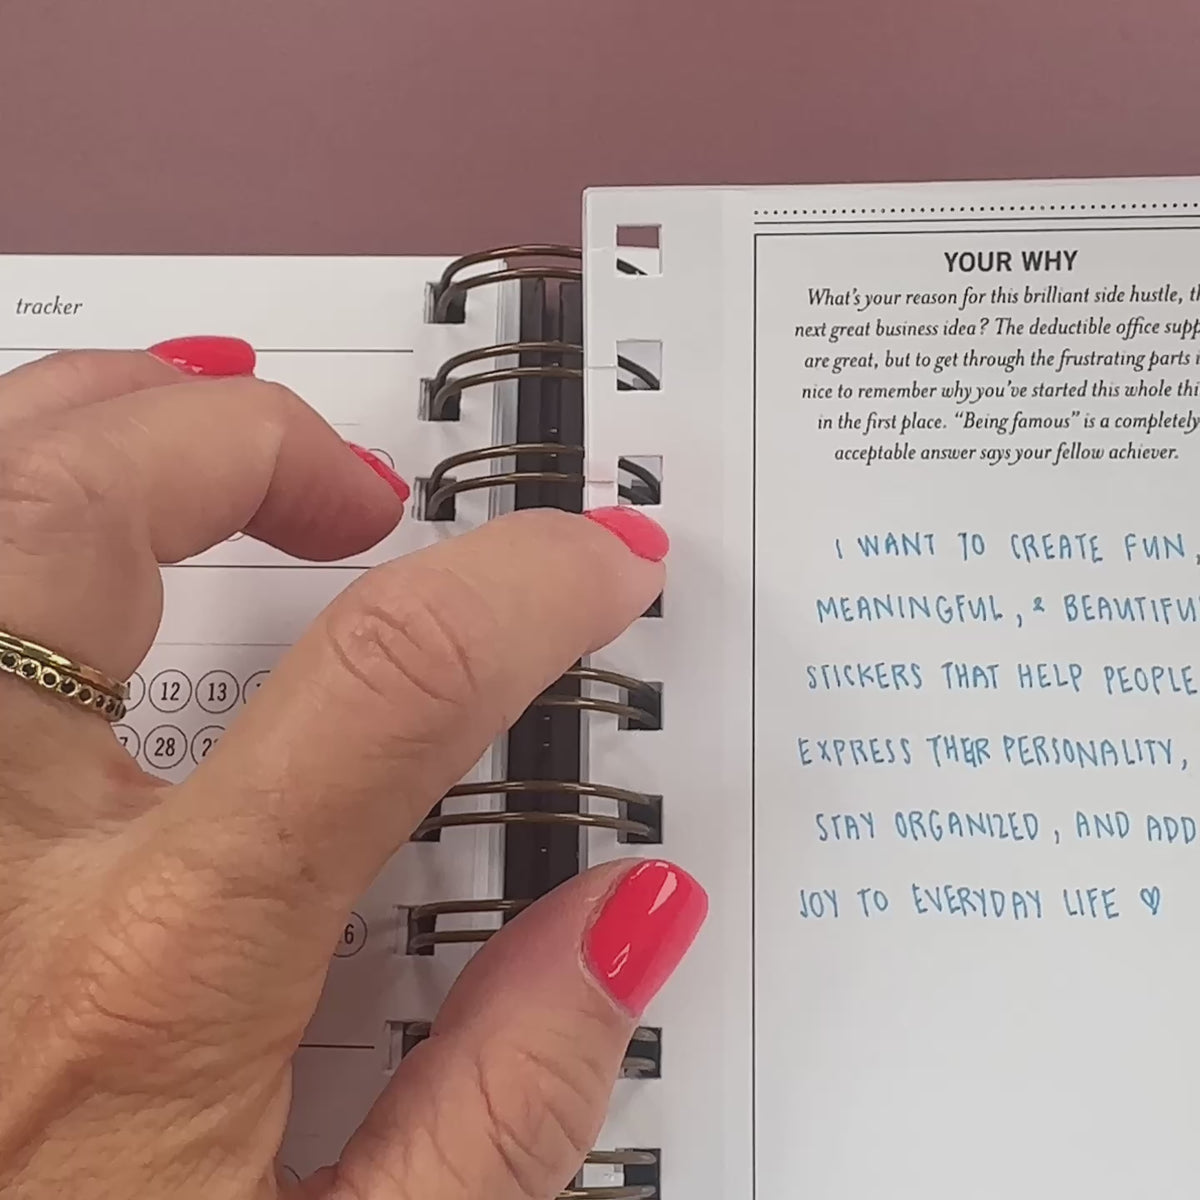 tracker
12 13
28
6
YOUR WHY
What's your reason for this brilliant side hustle,
next great business idea? The deductible office
are great, but to get through the frustrating parts
nice to remember why you've started this whole
in the first place. "Being famous" is a completely
acceptable answer says your fellow achiever.
I WANT TO CREATE FUN,
MEANINGFUL, & BEAUTIFUL
STICKERS THAT HELP PEOPLE
EXPRESS THEIR PERSONALITY,
STAY ORGANIZED, AND ADD
JOY TO EVERYDAY LIFE ♡